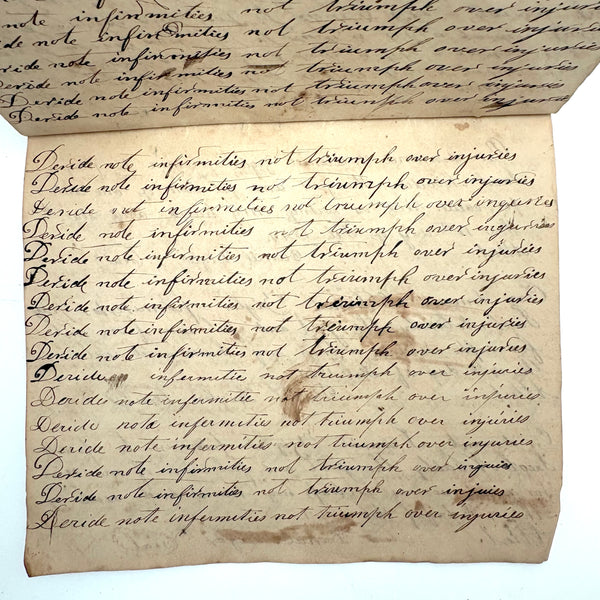 note infirmities not triumph over injuries
note infirmities not triumph over injuries
note infirmities not triumph over injuries
Deride note infirmities not triumph over injuries
Deride note infirmities not triumph over injuries
Deride note infirmities not triumph over injuries
Deride note infirmities not triumph over injuries
Deride note infirmities not triumph over injuries
Deride not infirmeties not truimph over injuries
Deride note infirmities not triumph over injuries
Deride note infirmities not triumph over injuries
Deride note infirmities not triumph over injuries
Deride note infirmities not trieumph over injuries
Deride note infirmities not triumph over injuries
Deride note infirmities not triumph over injuries
Deride infermities not triumph over injuries
Derides note infermitie not triumph over injuries
Deride note infermities not triumph over injuries
Deride note infermities not triumph over injuries
Deride note infirmities not triumph over injuies
Deride note infirmities not triumph over injuies
Deride note infermities not triumph over injuries